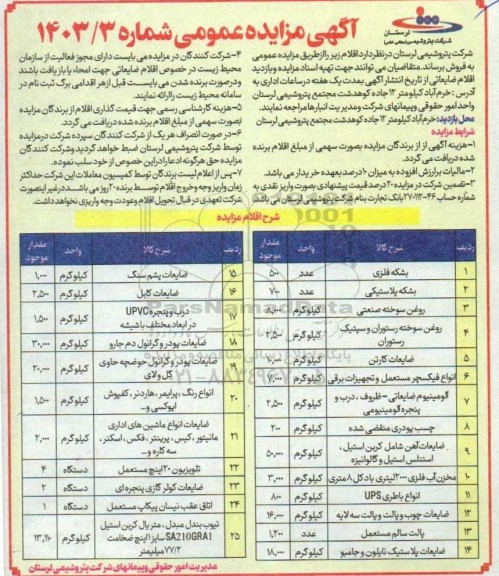 لرستان
شرکت پتروشیمی (سهامی عام)
آگهی مزایده عمومی شماره ۱۴۰۳/۳
شرکت پتروشیمی لرستان در نظر دارد اقلام زیر را از طریق مزایده عمومی
به فروش برساند. متقاضیان می توانند جهت تهیه اسناد مزایده و بازدید
اقلام ضایعاتی از تاریخ انتشار آگهی بمدت یک هفته در ساعات اداری به
آدرس: خرم آباد کیلومتر ۱۲ جاده کوهدشت مجتمع پتروشیمی لرستان
واحد امور حقوقی و پیمانهای شرکت و مدیریت انبارها مراجعه نمایند.
محل بازدید: خرم آباد کیلومتر ۱۲ جاده کوهدشت مجتمع پتروشیمی لرستان
شرایط مزایده
۱-هزینه آگهی از از برندگان مزایده بصورت سهمی از مبلغ اقلام برنده
شده دریافت می گردد.
۲-مالیات بر ارزش افزوده به میزان ۱۰درصد بعهده خریدار می باشد.
۳-تضمین شرکت در مزایده ۲۰درصد قیمت پیشنهادی بصورت واریز نقدی به
شماره حساب بانک تجارت بنام شرکت پتروشیمی لرستان می باشد.
۴-شرکت کنندگان در مزایده می بایست دارای مجوز فعالیت از سازمان
محیط زیست در خصوص اقلام ضایعاتی جهت امحاء یا بازیافت باشند
و در صورت برنده شدن می بایست قبل از هر اقدامی برگ ثبت نام در
سامانه محیط زیست را ارائه نمایند.
۵-هزینه کارشناسی رسمی جهت قیمت گذاری اقلام از برندگان مزایده
بصورت سهمی از مبلغ اقلام برنده شده دریافت می گردد.
۶-در صورت انصراف هر یک از شرکت کنندگان سپرده شرکت در مزایده
توسط شرکت پتروشیمی لرستان ضبط خواهد گردید و شرکت کنندگان
مزایده حق هرگونه ادعا را در این خصوص از خود سلب نموده.
۷-پس از اعلام لیست برندگان توسط کمیسیون معاملات این شرکت حداکثر
زمان واریز وجه و خروج اقلام توسط برنده ۲۰روز می باشد در غیر اینصورت
شرکت تعهدی در قبال تحویل اقلام و عودت وجه واریزی نخواهد داشت.
شرح اقلام مزایده
ردیف شرح کالا واحد مقدار موجود
۱ بشکه فلزی عدد ۵۰۰
۲ بشکه پلاستیکی عدد ۷۰۰
۳ روغن سوخته صنعتی کیلوگرم ۸,۰۰۰
۴ روغن سوخته رستوران و سپتیک رستوران کیلوگرم ۲,۵۰۰
۵ ضایعات کارتن کیلوگرم ۱۰,۰۰۰
۶ انواع فیکسچر مستعمل و تجهیزات برقی کیلوگرم
۷ آلومینیوم ضایعاتی - ظروف، درب و پنجره آلومینیومی کیلوگرم ۲,۵۰۰
۸ چسب پودری منقضی شده کیلوگرم ۲۰۰
۹ ضایعات آهن شامل کربن استیل، استنلس استیل و گالوانیزه کیلوگرم ۵۰,۰۰۰
۱۰ مخزن آب فلزی ۲۰۰۰لیتری با دکل ۸متری کیلوگرم ۳,۰۰۰
۱۱ انواع باطری UPS کیلوگرم ۸۰۰
۱۲ ضایعات چوب و پالت و پالت سه لایه کیلوگرم ۱۶,۰۰۰
۱۳ پالت سالم مستعمل عدد ۱,۲۰۰
۱۴ ضایعات پلاستیک نایلون و جامبو کیلوگرم ۱۸,۰۰۰
ردیف شرح کالا واحد مقدار موجود
۱۵ ضایعات پشم سنگ کیلوگرم ۱,۰۰۰
۱۶ ضایعات کابل کیلوگرم ۲,۵۰۰
۱۷ درب و پنجره UPVC در ابعاد مختلف باشیشه کیلوگرم ۱,۵۰۰
۱۸ ضایعات پودر و گرانول دم جارو کیلوگرم ۳۰,۰۰۰
۱۹ ضایعات پودر و گرانول حوضچه حاوی گل و لای کیلوگرم ۲۰,۰۰۰
۲۰ انواع رنگ، پرایمر، هاردنر، کفپوش اپوکسی و... کیلوگرم ۱,۵۰۰
۲۱ ضایعات انواع ماشین های اداری مانیتور، کیس، پرینتر، فکس، اسکنر، سه کاره و... کیلوگرم ۲,۰۰۰
۲۲ تلویزیون ۲۰اینچ مستعمل دستگاه ۴
۲۳ ضایعات کولر گازی پنجره ای دستگاه ۲
۲۴ اتاق عقب نیسان پیکاپ مستعمل دستگاه ۱
۲۵ تیوب بندل مبدل، متریال کربن استیل SA210GRA1 سایز ۱اینچ ضخامت ۲/۷۷میلیمتر کیلوگرم ۱۳,۱۱۰
ParsNamadData
مدیریت امور حقوقی و پیمانهای شرکت پتروشیمی لرستان